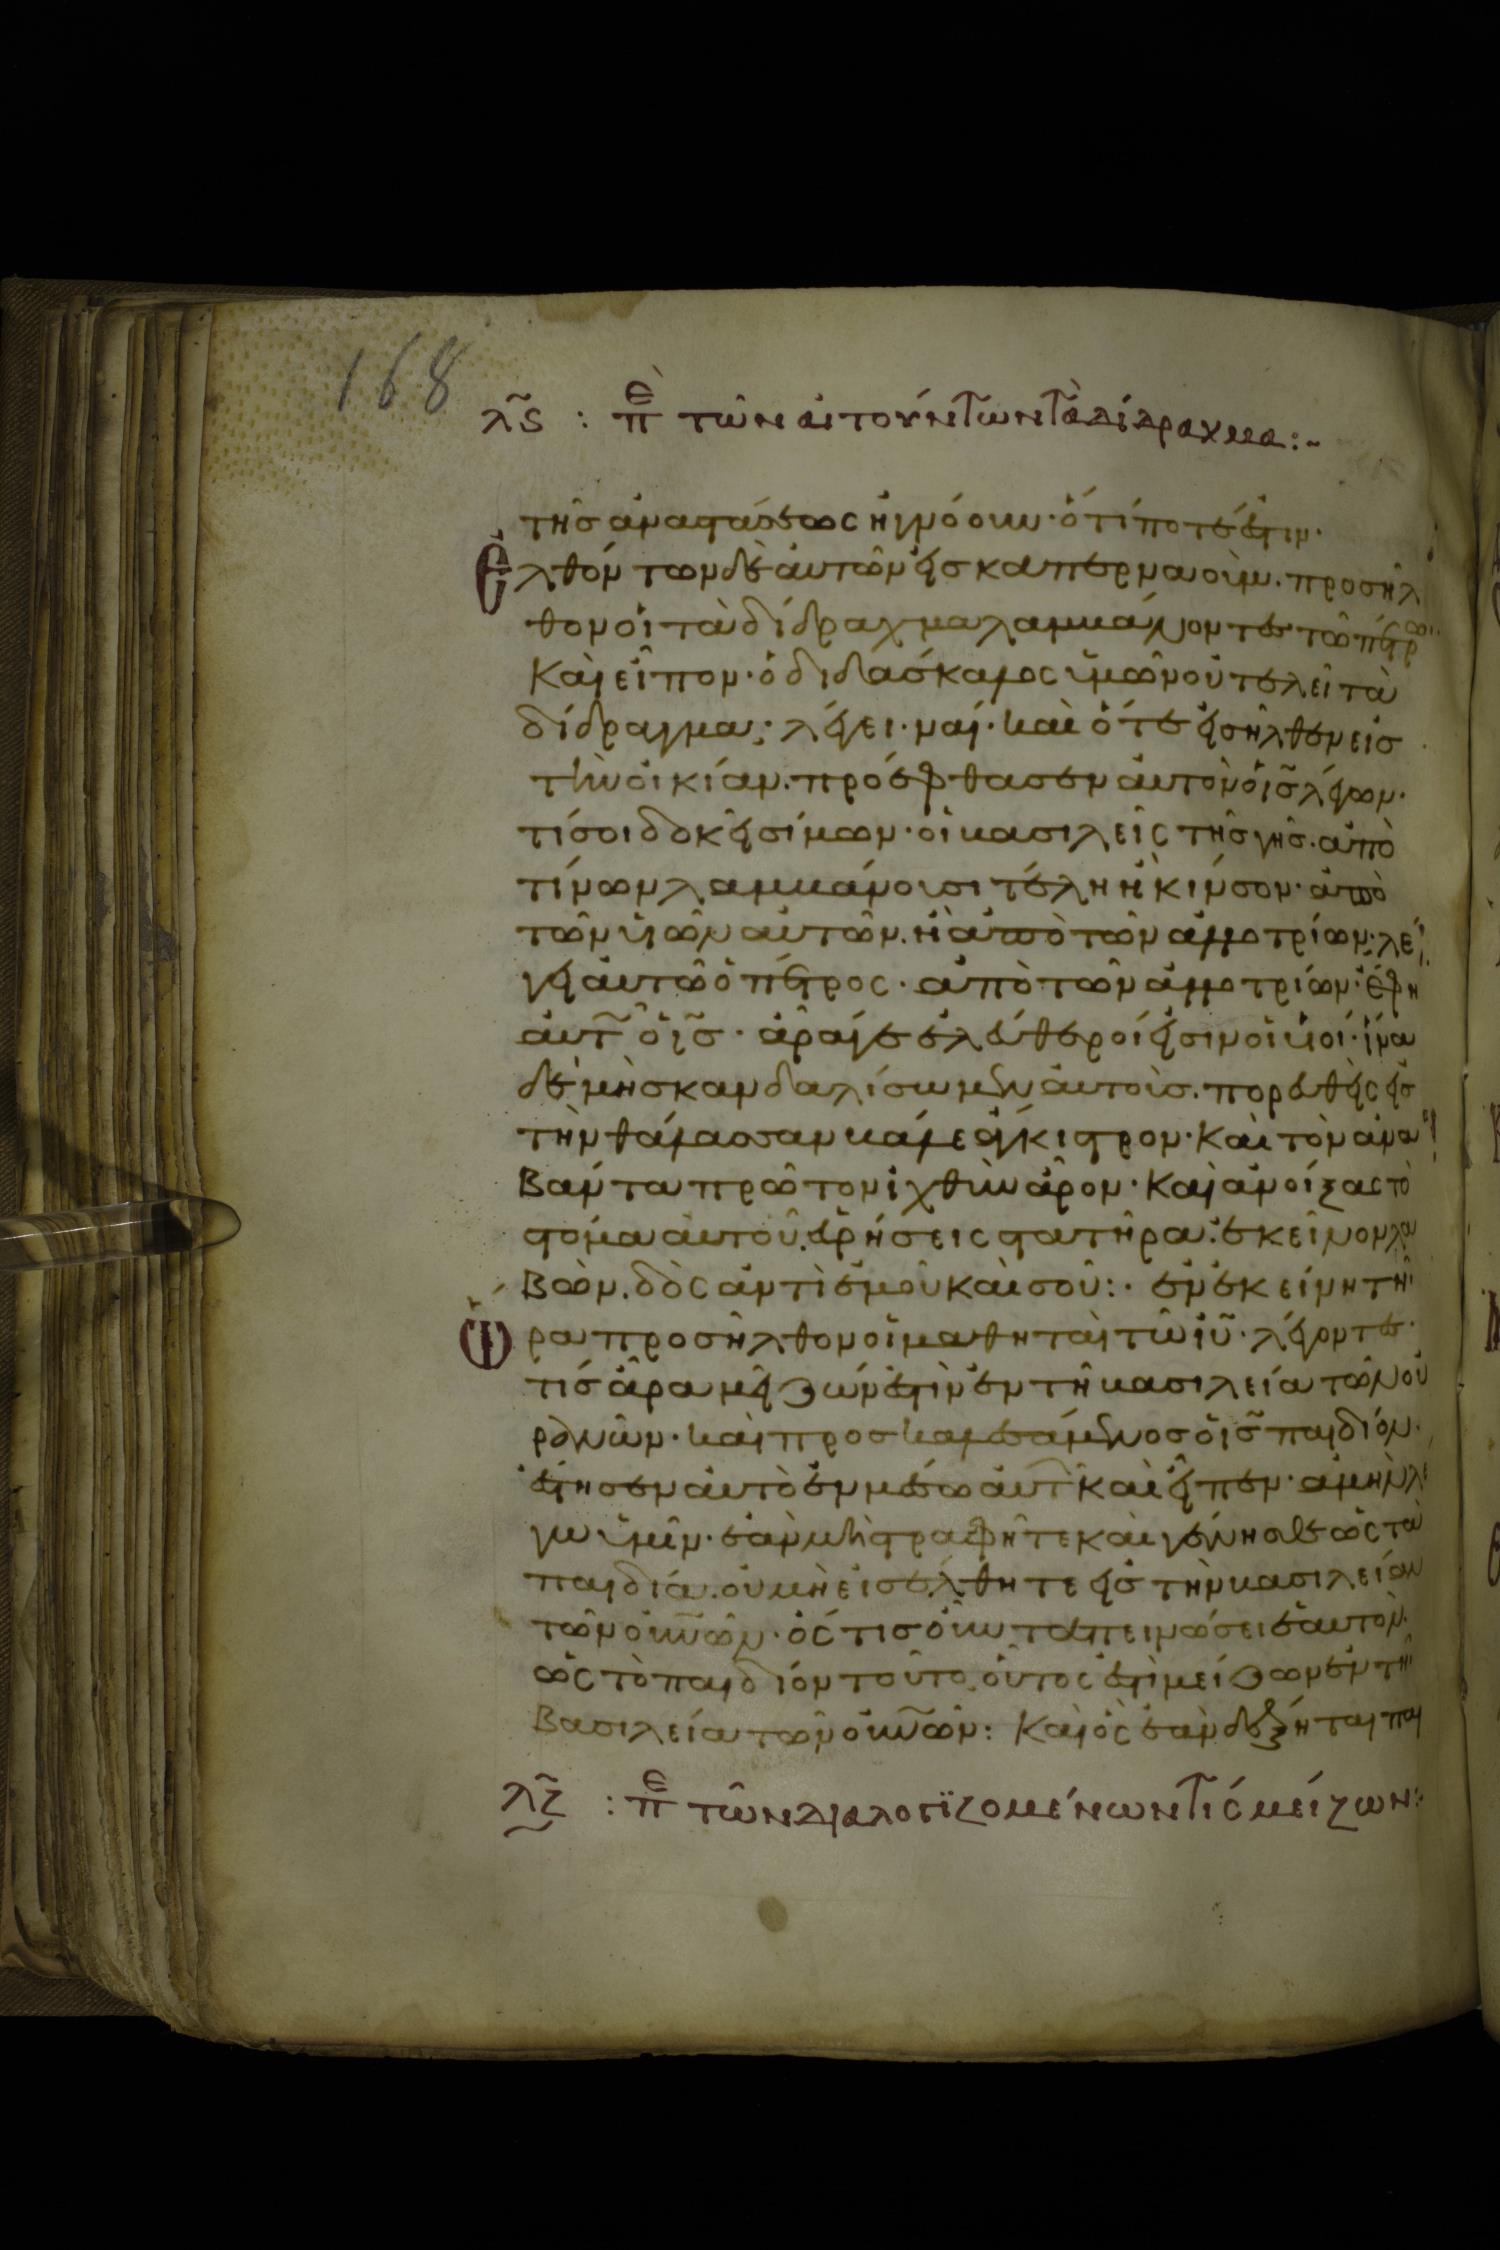 168
λς : πε τῶν αἰτούντων τὰ δίδραχμα :-
τῆς ἀναστάσεως ἠγνόουν· ὅτί ποτέ ἐστιν·
Ἐλθόντων δὲ αὐτῶν εἰς καπερναούμ. προσῆλ
θον οἱ τὰ δίδραχμα λαμβάνοντες τῶ πέτρω·
Καὶ εἶπον· ὁ διδάσκαλος ὑμῶν οὐ τελεῖ τὰ
δίδραγμα; λέγει· ναί· καὶ ὅτε εἰσῆλθεν εἰς
τὴν οἰκίαν. προέφθασεν αὐτὸν ὁ ις λέγων·
τί σοι δοκεῖ σίμων· οἱ βασιλεῖς τῆς γῆς. ἀπὸ
τίνων λαμβάνουσι τέλη ἢ κίνσον· ἀπὸ
τῶν υἱῶν αὐτῶν. ἢ ἀπὸ τῶν ἀλλοτρίων; λέ
γει αὐτῶ ὁ πέτρος· ἀπὸ τῶν ἀλλοτρίων· ἔφη
αὐτ ὁ ις· ἄραγε ἐλεύθεροί εἰσιν οἱ υἱοί· ἵνα
δὲ μὴ σκανδαλίσωμεν αὐτοὺς. πορευθεὶς εἰς
τὴν θάλασσαν βάλε ἄγκιστρον· Καὶ τὸν ἀνα
βάντα πρῶτον ἰχθὺν ἆρον· Καὶ ἀνοίξας τὸ
στόμα αὐτοῦ. εὑρήσεις στατῆρα. ἐκεῖνον λα
βὼν. δὸς ἀντὶ ἐμοῦ καὶ σοῦ :· ἐν ἐκείνη τῆ
ὥρα προσῆλθον οἱ μαθηταὶ τῶ ιυ· λέγοντες·
τίς ἄρα μείζων ἐστὶν ἐν τῆ βασιλεία τῶν οὐ
ρανῶν· καὶ προσκαλεσάμενος ὁ ις παιδίον·
ἔστησεν αὐτὸ ἐν μέσω αὐτ καὶ εἶπεν· ἀμὴν λέ
γω ὑμῖν· ἐὰν μὴ στραφῆτε καὶ γένησθε ὡς τὰ
παιδία. οὐ μὴ εἰσέλθητε εἰς τὴν βασιλείαν
τῶν οὐνῶν· ὅς τις οὖν ταπεινώσει ἑαυτὸν.
ὡς τὸ παιδίον τοῦτο. οὗτος ἐστὶ μείζων ἐν τῆ
βασιλεία τῶν οὐνῶν : Καὶ ὃς ἐὰν δέξηται παι
λζ : πε τῶν διαλογϊζομένων τίς μείζων :·